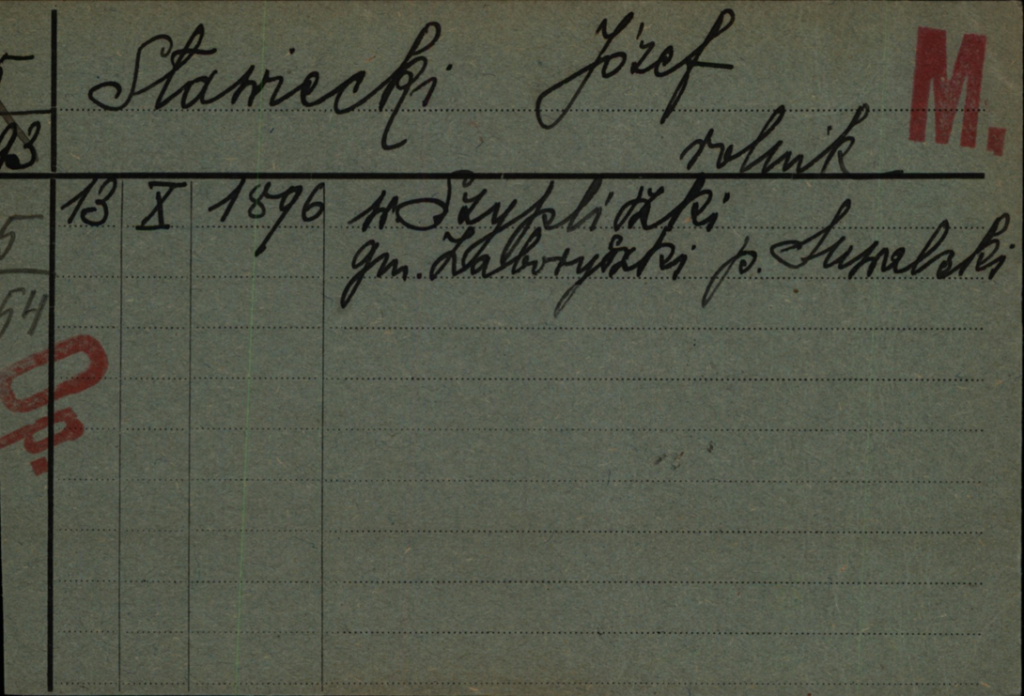 Stawiecki Józef
M.
93
rolnik
13 X 1896 w Szypliszki
5
gm. Zaboryszki p. Suwalski
54
Op.